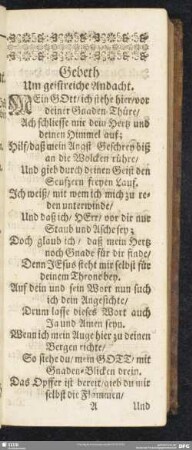 Gebeth
Um geistreiche Andacht.
MEin GOtt/ ich stehe hier/ vor
deiner Gnaden-Thüre/
Ach schliesse mir dein Hertz und
deinen Himmel auf;
Hilf/ daß mein Angst-Geschrey biß
an die Wolcken rühre/
Und gieb durch deinen Geist den
Seufzern freyen Lauf.
Ich weiß/ mit wem ich mich zu re-
den unterwinde/
Und daß ich/ HErr/ vor dir nur
Staub und Asche sey;
Doch glaub ich/ daß mein Hertz
noch Gnade für dir finde/
Denn JEsus steht mir selbst für
deinem Throne bey.
Auf dein und sein Wort nun such
ich dein Angesichte/
Drum lasse dieses Wort auch
Ja und Amen seyn.
Wenn ich mein Auge hier zu deinen
Bergen richte/
So siehe du/ mein GOTT/ mit
Gnaden-Blicken drein.
Das Opffer ist bereit/ gieb du mir
selbst die Flammen/
A Und